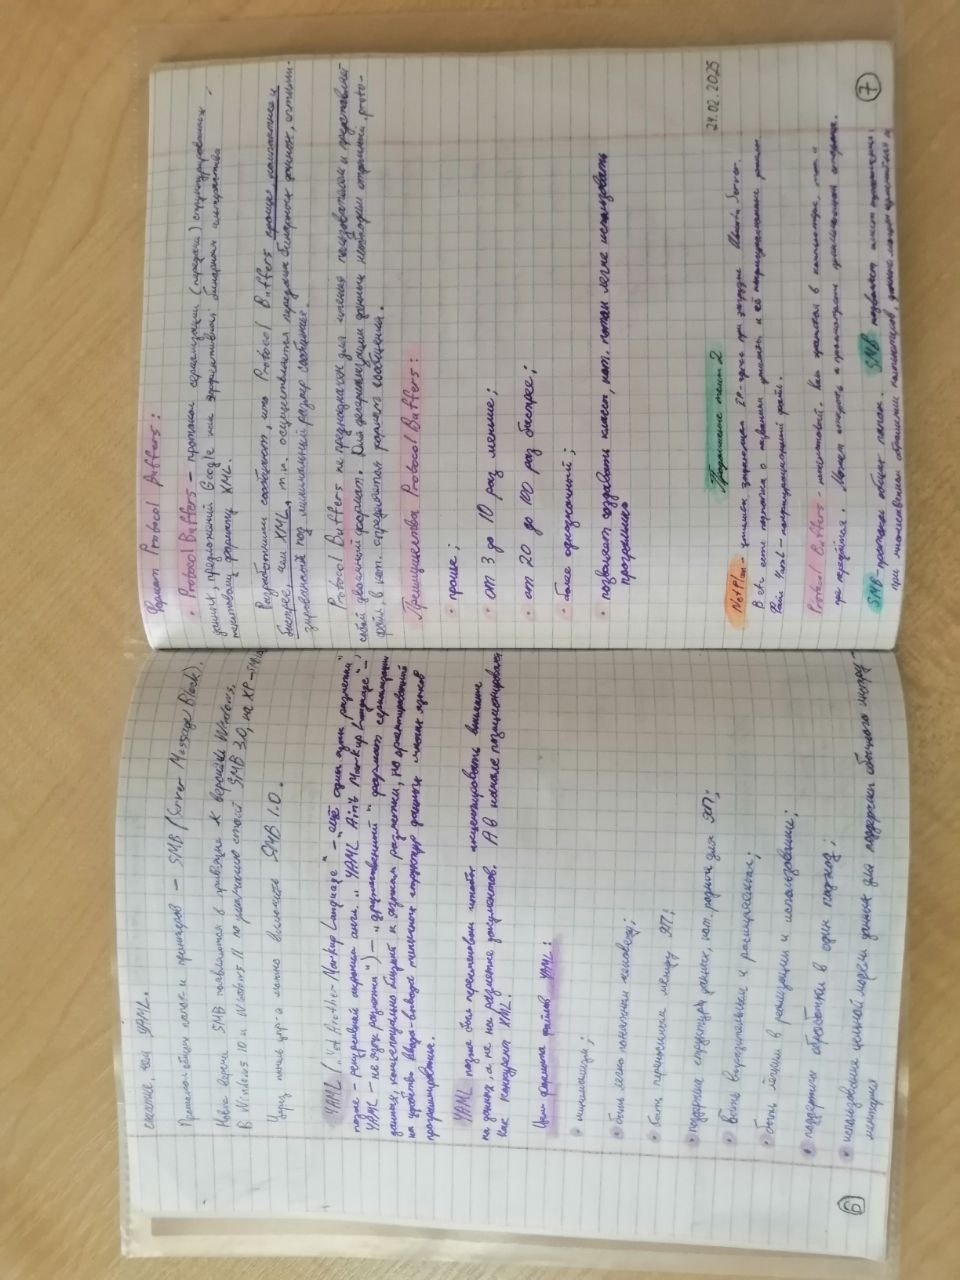 сжатие, чем YAML.
Протокол общих папок и принтеров – SMB (Server Message Block).
Новые версии SMB появляются в привязке к версиям Windows.
В Windows 10 и Windows 11 по умолчанию стоит SMB 3.0, на XP –
Через панель упр-я можно включить SMB 1.0.
YAML („Yet Another Markup Language" – „ещё один язык разметки",
позже – рекурсивный акроним англ. „YAML Ain't Markup Language" –
„YAML – не язык разметки") – „дружественный" формат сериализации
данных, концептуально близкий к языкам разметки, но ориентированный
на удобство ввода-вывода типичных структур данных многих языков
программирования.
YAML позже был переименован чтобы акцентировать внимание
на данных, а не на разметке документов. А в начале позиционировался
как конкурент XML.
Цели формата файлов YAML:
• минимализм;
• быть легко понятным человеку;
• быть переносимым между ЯП;
• поддержка структуры данных, кот. родной для ЯП;
• быть выразительным и расширяемым;
• быть лёгким в реализации и использовании;
• поддержка обработки в один подход;
• использование цельной модели данных для поддержки обычного инстру-
ментария
6
Формат Protocol Buffers:
• Protocol Buffers – протокол сериализации (передачи) структурированных
данных, предложений Google как эффективная бинарная альтернатива
текстовому формату XML.
Разработчики сообщают, что Protocol Buffers проще, компактнее и
быстрее, чем XML, т.к. осуществляется передача бинарных данных, оптими-
зированная под минимальный размер сообщения.
Protocol Buffers не предназначен для чтения пользователем и представляет
собой двоичный формат. Для десериализации данных необходим отдельный .proto-
файл, в кот. определяется формат сообщения.
Преимущества Protocol Buffers:
• проще;
• от 3 до 10 раз меньше;
• от 20 до 100 раз быстрее;
• более однозначный;
• позволяет создавать классы, кот. потом легче использовать
программно
Продолжение темы 2
24.02.2025
NetPlan – утилита IP-адреса при загрузке Ubuntu Server.
В etc есть подпапка с названием утилиты и её конфигурационные файлы
Файл Yaml – конфигурационный файл.
Protocol Buffers – Как хранится в компьютере, так и
передаётся. Может открыть и просмотреть принимающая сторона.
SMB – протокол общих папок. SMB позволяет
при множественном обращении компьютеров, данные могут
7